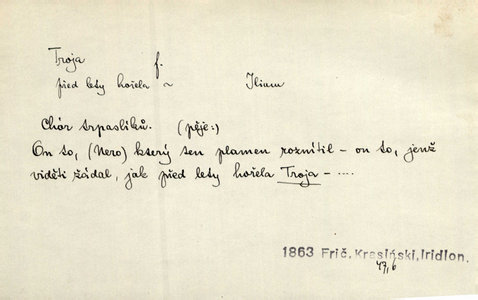 Troja f.
před lety hořela ~ Ilium
Chór trpaslíků. (pěje:)
On to, (Nero) který ten plamen roznítil – on to, jenž
viděti žádal, jak před lety hořela Troja – ....
1863 Frič, Krasiński, Iridion.
47,6